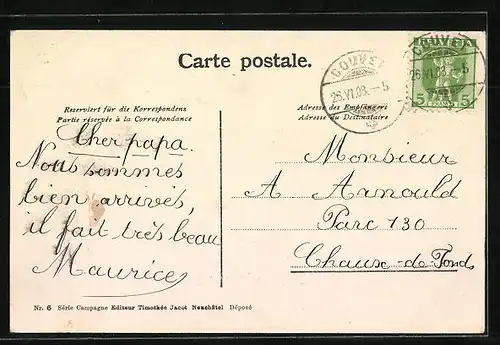 Carte postale.
COUVET
26.VI.08.-5
COUVET
26.VI.08.-5
5 FRANCO 5
Reserviert für die Korrespondenz
Partie réservée à la Correspondance
Adresse des Empfängers
Adresse du Destinataire
Cher papa.
Nous sommes
bien arrivés,
il fait très beau
Maurice
Monsieur
A Arnould
Parc 130
Chaux-de-Fonds
Nr. 6 Série Campagne Editeur Timothée Jacot Neuchâtel Déposé